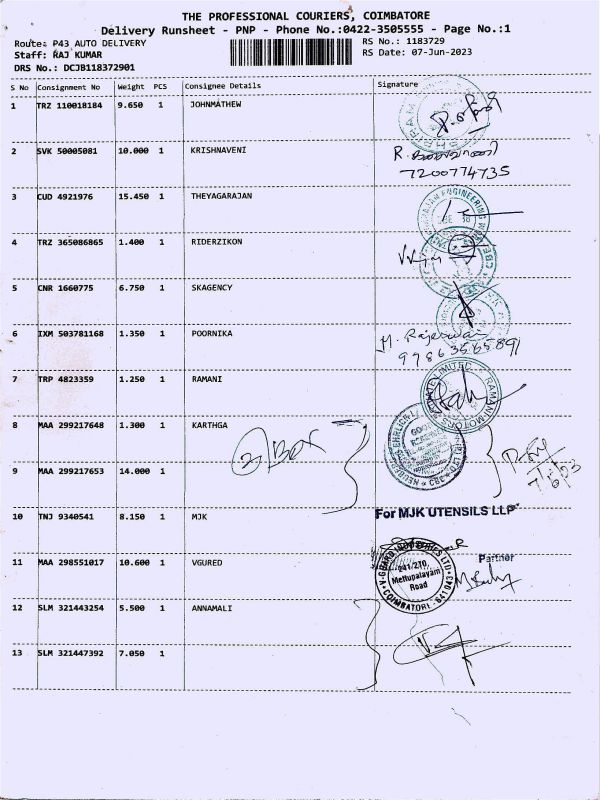 THE PROFESSIONAL COURIERS, COIMBATORE
Delivery Runsheet - PNP - Phone No.:0422-3505555 - Page No.:1
Route: P43 AUTO DELIVERY
RS No.: 1183729
Staff: RAJ KUMAR
RS Date: 07-Jun-2023
DRS No.: DCJB118372901
S No Consignment No Weight PCS Consignee Details Signature
1 TRZ 110018184 9.650 1 JOHNMATHEW
2 SVK 50005081 10.000 1 KRISHNAVENI
R.
7200774735
3 CUD 4921976 15.450 1 THEYAGARAJAN
ENGINEERING
4 TRZ 365086865 1.400 1 RIDERZIKON
5 CNR 1660775 6.750 1 SKAGENCY
6 IXM 503781168 1.350 1 POORNIKA
M. Rajeswari
9786356589
7 TRP 4823359 1.250 1 RAMANI
RAMANI MOTORS PRIVATE LIMITED
8 MAA 299217648 1.300 1 KARTHGA
2 Box
9 MAA 299217653 14.000 1
7/6/23
10 TNJ 9340541 8.150 1 MJK
For MJK UTENSILS LLP
Partner
11 MAA 298551017 10.600 1 VGURED
V-GUARD INDUSTRIES LTD
241-270,
Mettupalayam
Road
COIMBATORE - 641043
12 SLM 321443254 5.500 1 ANNAMALI
13 SLM 321447392 7.050 1